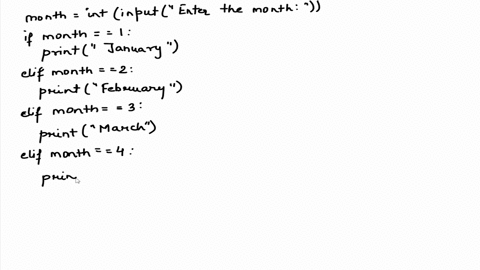 month = int (input("Enter the month: "))
if month = = 1:
print(" January ")
elif month = = 2:
print("February")
elif month = = 3:
print("March")
elif month = = 4:
prin